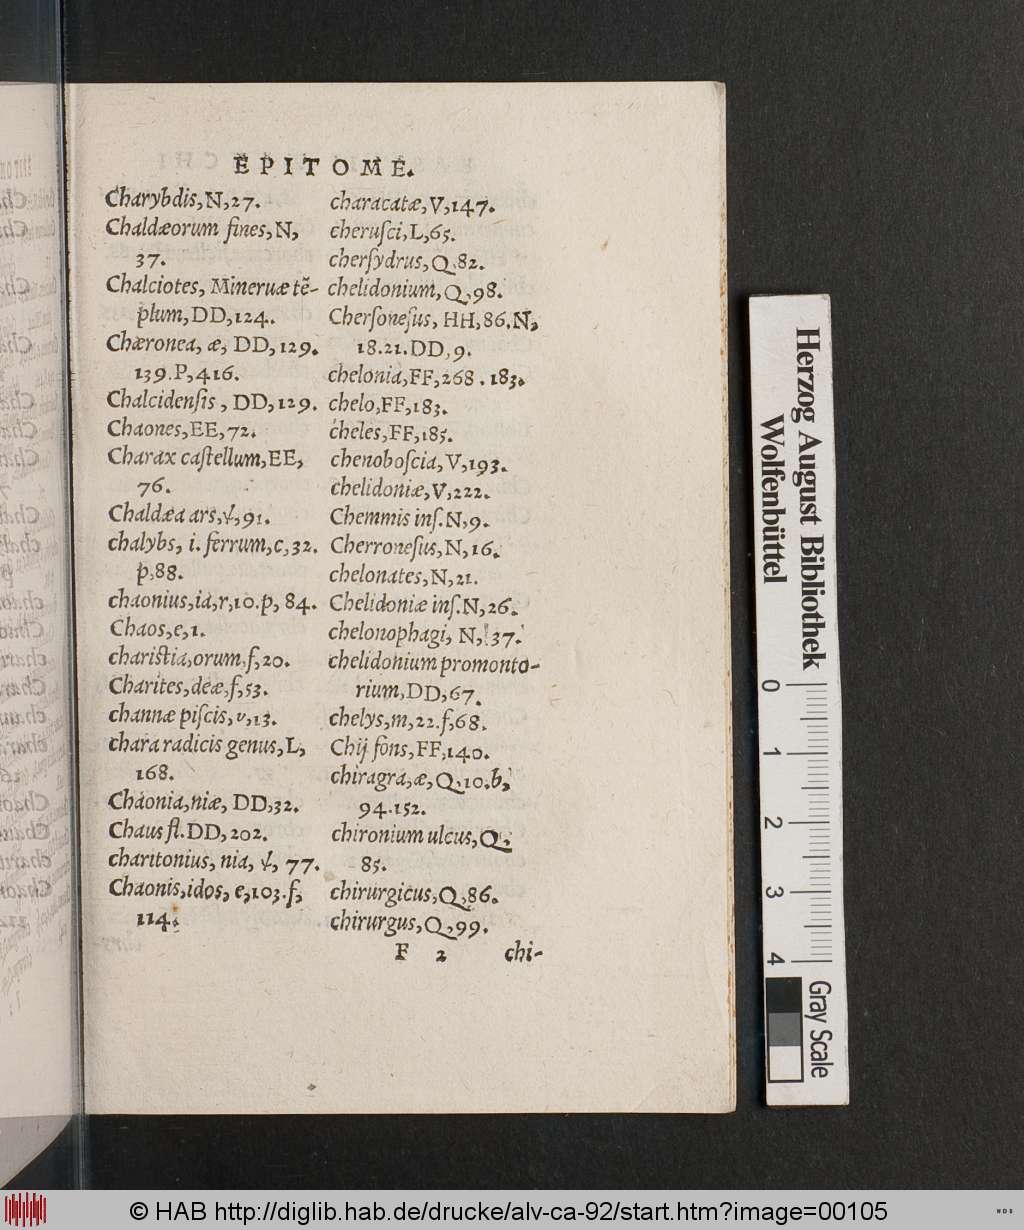 EPITOME.
Charybdis, N, 27.
Chaldæorum fines, N,
37.
Chalciotes, Mineruæ tẽ-
plum, DD, 124.
Chæronea, æ, DD, 129.
139. P, 416.
Chalcidensis, DD, 129.
Chaones, EE, 72.
Charax castellum, EE,
76.
Chaldæa ars, ψ, 91.
chalybs, i. ferrum, c, 32.
p, 88.
chaonius, ia, r, 10. p, 84.
Chaos, e, 1.
charistia, orum, f, 20.
Charites, deæ, f, 53.
channæ piscis, v, 13.
chara radicis genus, L,
168.
Chaonia, niæ, DD, 32.
Chaus fl. DD, 202.
charitonius, nia, ψ, 77.
Chaonis, idos, e, 103. f,
114.
characatæ, V, 147.
cherusci, L, 65.
chersydrus, Q, 82.
chelidonium, Q, 98.
Chersonesus, HH, 86. N,
18. 21. DD, 9.
chelonia, FF, 268. 183.
chelo, FF, 183.
cheles, FF, 185.
chenoboscia, V, 193.
chelidoniæ, V, 222.
Chemmis ins. N, 9.
Cherronesus, N, 16.
chelonates, N, 21.
Chelidoniæ ins. N, 26.
chelonophagi, N, 37.
chelidonium promonto-
rium, DD, 67.
chelys, m, 22. f, 68.
Chij fons, FF, 140.
chiragra, æ, Q, 10. b,
94. 152.
chironium ulcus, Q,
85.
chirurgicus, Q, 86.
chirurgus, Q, 99.
F 2 chi-
Herzog August Bibliothek
Wolfenbüttel
0 1 2 3 4
Gray Scale
© HAB http://diglib.hab.de/drucke/alv-ca-92/start.htm?image=00105